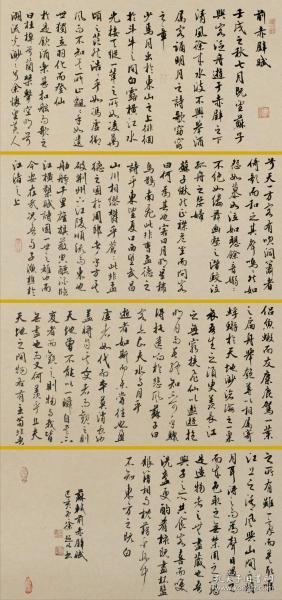 前赤壁賦
壬戌之秋七月既望蘇子
與客泛舟遊于赤壁之下
清風徐來水波不興舉酒
屬客誦明月之詩歌窈窕
之章
少焉月出於東山之上徘徊
於斗牛之間白露橫江水
光接天縱一葦之所如凌萬
頃之茫然浩浩乎如馮虛御
風而不知其所止飄飄乎如遺
世獨立羽化而登仙
於是飲酒樂甚扣舷而歌之
曰桂棹兮蘭槳擊空明兮
溯流光渺渺兮余懷望美人
兮天一方客有吹洞簫者
倚歌而和之其聲嗚嗚然
如怨如慕如泣如訴餘音嫋嫋
不絕如縷舞幽壑之潛蛟泣
孤舟之嫠婦
蘇子愀然正襟危坐而問客
曰何為其然也客曰月明星稀
烏鵲南飛此非曹孟德之
詩乎東望夏口西望武昌
山川相繆鬱乎蒼蒼此非孟
德之困於周郎者乎方其
破荊州下江陵順流而東也
舳艫千里旌旗蔽空釃酒臨
江橫槊賦詩固一世之雄也而
今安在哉況吾與子漁樵於
江渚之上
侶魚蝦而友麋鹿駕一葉
之扁舟舉匏樽以相屬寄
蜉蝣於天地渺滄海之一粟
哀吾生之須臾羨長江
之無窮挾飛仙以遨遊抱
明月而長終知不可乎驟
得托遺響於悲風蘇子曰
客亦知夫水與月乎
逝者如斯而未嘗往也盈
虛者如彼而卒莫消長也
蓋將自其變者而觀之則
天地曾不能以一瞬自其不
變者而觀之則物與我皆
無盡也而又何羨乎且夫
天地之間物各有主苟非吾
之所有雖一毫而莫取惟
江上之清風與山間之明
月耳得之而為聲目遇之
而成色取之無禁用之不竭
是造物者之無盡藏也而吾
與子之所共食客喜而笑
洗盞更酌肴核既盡杯盤
狼藉相與枕藉乎舟中
不知東方之既白
蘇軾前赤壁賦